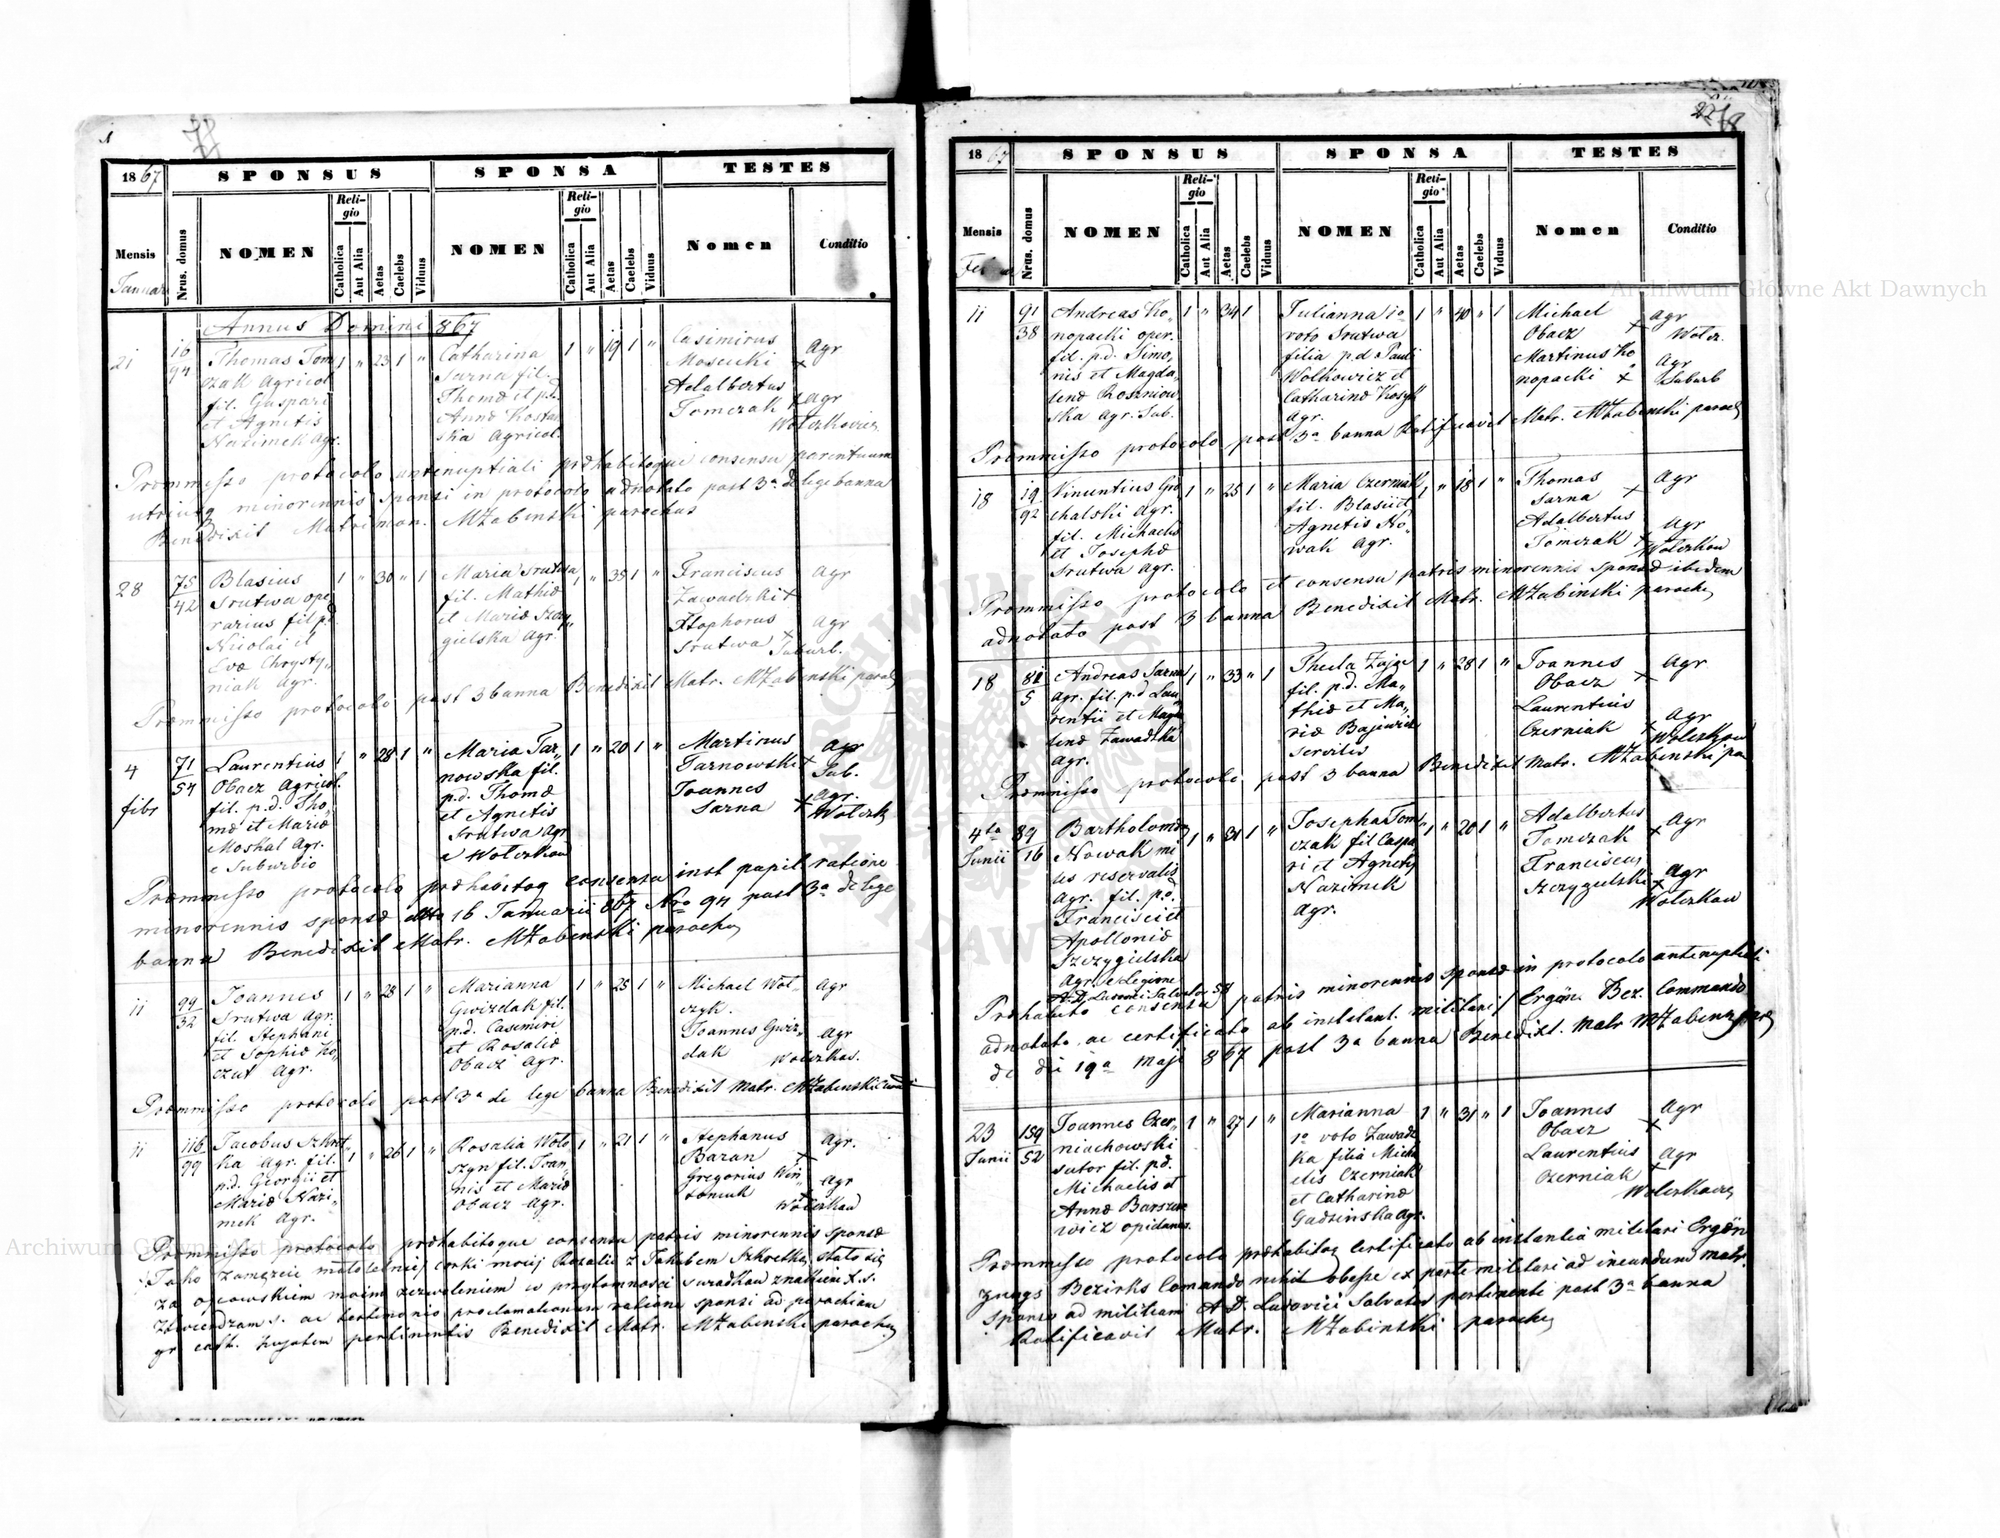 22
78
1867
SPONSUS
SPONSA
TESTES
Mensis
Januar
Nrus. domus
NOMEN
Religio
Catholica
Aut Alia
Aetas
Caelebs
Viduus
NOMEN
Religio
Catholica
Aut Alia
Aetas
Caelebs
Viduus
Nomen
Conditio
Annus Domini 867
21
16
94
Thomas Tom
czak Agricol.
fil. Gaspari
et Agnetis
Nazimek Agr.
1 " 23 1 "
Catharina
Sarna fil.
Thomæ et p.d.
Annæ
ska Agricol.
1 " 19 1 "
Casimirus
Moscicki
Adalbertus
Tomczak
Agr
Agr
Præmisso protocolo antenuptiali præhabitoque consensu parentum
utriusq minorennis sponsi in protocolo adnotato post 3ª de lege banna
Benedixit Matrimon. MŻabinski parochus
28
75
42
Blasius
Srutwa ope
rarius fil p.d
Nicolai et
Evæ Chrysty„
niak Agr.
1 " 30 " 1
Maria Srutwa
fil. Mathiæ
et Mariæ Szczy„
gielska Agr.
1 " 35 1 "
Franciscus
Zawadzki +
Xtophorus
Srutwa +
Agr
Agr
Suburb.
Præmisso protocolo post 3 banna Benedixit Matr. MŻabinski paroch
4
febr
71
54
Laurentius
Obacz Agricol.
fil. p.d. Tho„
mæ et Mariæ
Moskal Agr.
e Suburbio
1 " 28 1 "
Maria Tar„
nowska fil.
p.d. Thomæ
et Agnetis
Srutwa Agr
e Wolczkow
1 " 20 1 "
Martinus
Tarnowski +
Joannes
Sarna +
Agr
Sub.
Agr.
Wolczk
Præmisso protocolo præhabitoq consensu inst pupil ratione
minorennis sponsæ ddto 16 Januarii 867 Nro 94 post 3ª de lege
banna Benedixit Matr. MŻabinski parochus
11
99
32
Joannes
Srutwa Agr.
fil. Stephani
et Sophiæ Ko„
czut Agr.
1 " 28 1 "
Marianna
Gwizdak fil.
p.d. Casimiri
et Rosaliæ
Obacz Agr.
1 " 25 1 "
Michael Wol„
czyk.
Joannes Gwiz„
dak
Agr
Agr
Wolczkow.
Præmisso protocolo post 3ª de lege banna Benedixit Matr. MŻabinski
11
116
99
Jacobus Szkret„
ka Agr. fil.
p.d. Georgii et
Mariæ Nazi„
mek Agr.
1 " 26 1 "
Rosalia Woło
szyn fil. Joan„
nis et Mariæ
Obacz Agr.
1 " 21 1 "
Stephanus
Baran +
Gregorius Win„
+
Agr.
Agr
Wolczkow
Præmisso protocolo præhabitoque consensu patris minorennis sponsæ
Jako zamęzcie małoletniej corki mojej Rozalii z Jakubem Szkretką stało się
za ojcowskiem moim zezwoleniem w przytomności swiadkow znakiem X. s.
ztwierdzam s. ac testimonio proclamationum ratione sponsi ad parochiam
gr. cath. pertinentis Benedixit Matr. MŻabinski parochus
1867
SPONSUS
SPONSA
TESTES
Mensis
Nrus. domus
NOMEN
Religio
Catholica
Aut Alia
Aetas
Caelebs
Viduus
NOMEN
Religio
Catholica
Aut Alia
Aetas
Caelebs
Viduus
Nomen
Conditio
11
91
38
Andreas Ko„
nopacki oper.
fil. p.d. Simo„
nis et Magda„
lenæ Kozniow„
ska Agr. Sub.
1 " 34 1
Julianna 1o
voto Srutwa
filia p.d. Pauli
Wolkowicz et
Catharinæ Kosyk
Agr.
1 " 40 " 1
Michael
Obacz +
Martinus Ko
nopacki +
Agr
Wolcz.
Agr
Suburb
Præmisso protocolo post 3ª banna Ratificavit Matr. MŻabinski paroch
18
19
92
Vincentius Gro
chalski Agr.
fil. Michaelis
et Josephæ
Srutwa Agr.
1 " 25 1 "
Maria Czerniak
fil. Blasii et
Agnetis No„
wak Agr.
1 " 18 1 "
Thomas
Sarna +
Adalbertus
Tomczak +
Agr
Agr
Wolczkow
Præmisso protocolo et consensu patris minorennis sponsæ ibidem
adnotato post 3 banna Benedixit Matr. MŻabinski parochus
18
81
5
Andreas Sarna
Agr. fil. p.d Lau
rentii et Magda
lenæ Zawadzka
Agr.
1 " 33 " 1
Thecla Zając
fil. p.d. Ma„
thiæ et Ma„
riæ
servilis
1 " 28 1 "
Joannes
Obacz +
Laurentius
Czerniak +
Agr
Agr
Wolczkow
Præmisso protocolo post 3 banna Benedixit Matr. MŻabinski pa
4ta
Junii
89
16
Bartholomæus
Nowak mi
les reservalis
Agr. fil. p.d.
Francisci et
Apolloniæ
Szczygielska
Agr. e Legione
A.D. Ludovici Salvator 58
1 " 31 1 "
Josepha Tom„
czak fil Caspa
ri et Agnetis
Nazimek
Agr.
1 " 20 1 "
Adalbertus
Tomczak +
Franciscus
Szczygielski +
Agr
Agr
Wolczkow
Præhabito consensu patris minorennis sponsæ in protocolo antenuptiali
adnotato, ac certificato ab instant. militari / Ergän. Bez. Commando
de die 19a Maji 867 post 3ª banna Benedixt. Matr MŻabinski
23
Junii
159
52
Joannes Czer„
niachowski
sutor fil. p.d.
Michaelis et
Annæ Barszcze
wicz opidanus.
1 " 27 1 "
Marianna
1º voto Zawadz
ka filia Micha
elis Czerniak
et Catharinæ
Gadzinska Agr.
1 " 31 " 1
Joannes
Obacz +
Laurentius
Czerniak +
Agr
Agr
Præmisso protocolo præhabitoq Certificato ab instantia militari Ergän
zungs Bezirks Comando nihil obesse ex parte militari ad ineundum matr.
sponso ad militiam A D. Ludovici Salvator pertinenti post 3ª banna
Ratificavit Matr. MŻabinski parochus
Archiwum Główne Akt Dawnych
Archiwum Główne Akt Dawnych